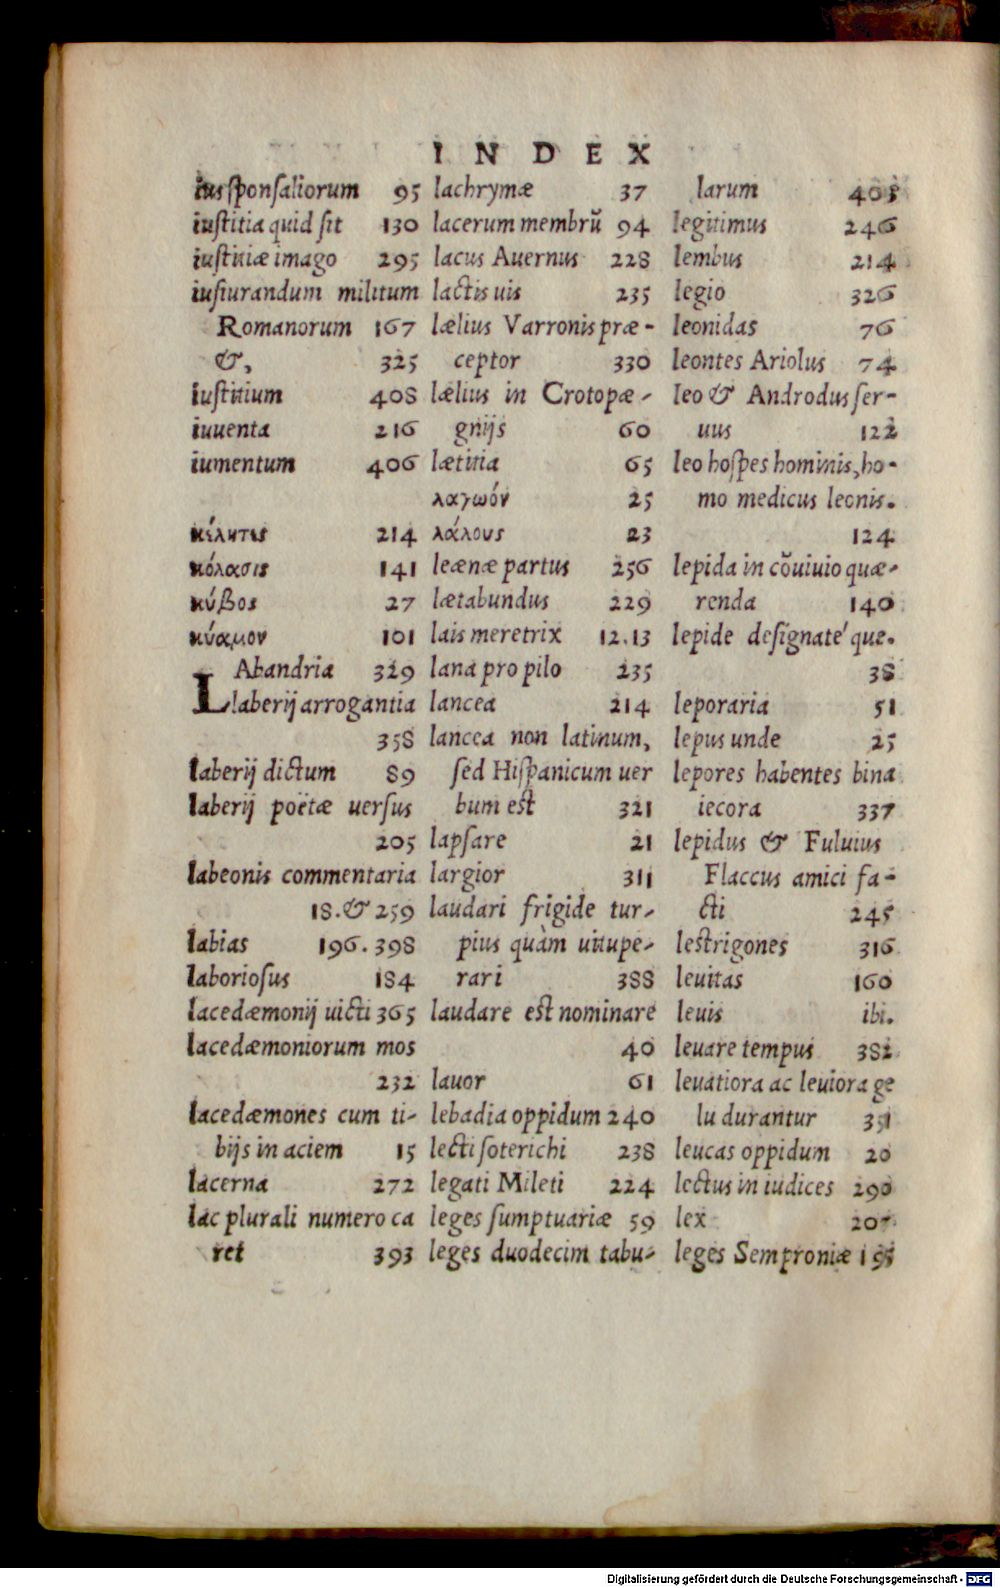 INDEX
ius sponsaliorum 95
iustitia quid sit 130
iustitiæ imago 295
iusiurandum militum
Romanorum 167
&, 325
iustitium 408
iuuenta 216
iumentum 406
κέλητες 214
κόλασις 141
κύβος 27
κύαμον 101
LAbandria 329
laberij arrogantia
358
laberij dictum 89
laberij poëtæ uersus
205
labeonis commentaria
18.& 259
labias 196.398
laboriosus 184
lacedæmonij uicti 365
lacedæmoniorum mos
232
lacedæmones cum ti-
bijs in aciem 15
lacerna 272
lac plurali numero ca
ret 393
lachrymæ 37
lacerum membrũ 94
lacus Auernus 228
lactis uis 235
lælius Varronis præ-
ceptor 330
lælius in Crotopæ-
gnijs 60
lætitia 65
λαγωόν 25
λάλους 23
leænæ partus 256
lætabundus 229
lais meretrix 12.13
lana pro pilo 235
lancea 214
lancea non latinum,
sed Hispanicum uer
bum est 321
lapsare 21
largior 311
laudari frigide tur-
pius quàm uitupe-
rari 388
laudare est nominare
40
lauor 61
lebadia oppidum 240
lecti soterichi 238
legati Mileti 224
leges sumptuariæ 59
leges duodecim tabu-
larum 405
legitimus 246
lembus 214
legio 326
leonidas 76
leontes Ariolus 74
leo & Androdus ser-
uus 122
leo hospes hominis, ho-
mo medicus leonis.
124
lepida in cõuiuio quæ-
renda 140
lepide designate' quæ.
38
leporaria 51
lepus unde 25
lepores habentes bina
iecora 337
lepidus & Fuluius
Flaccus amici fa-
cti 245
lestrigones 316
leuitas 160
leuis ibi.
leuare tempus 382
leuatiora ac leuiora ge
lu durantur 351
leucas oppidum 20
lectus in iudices 290
lex
leges Semproniæ 195
Digitalisierung gefördert durch die Deutsche Forschungsgemeinschaft - DFG